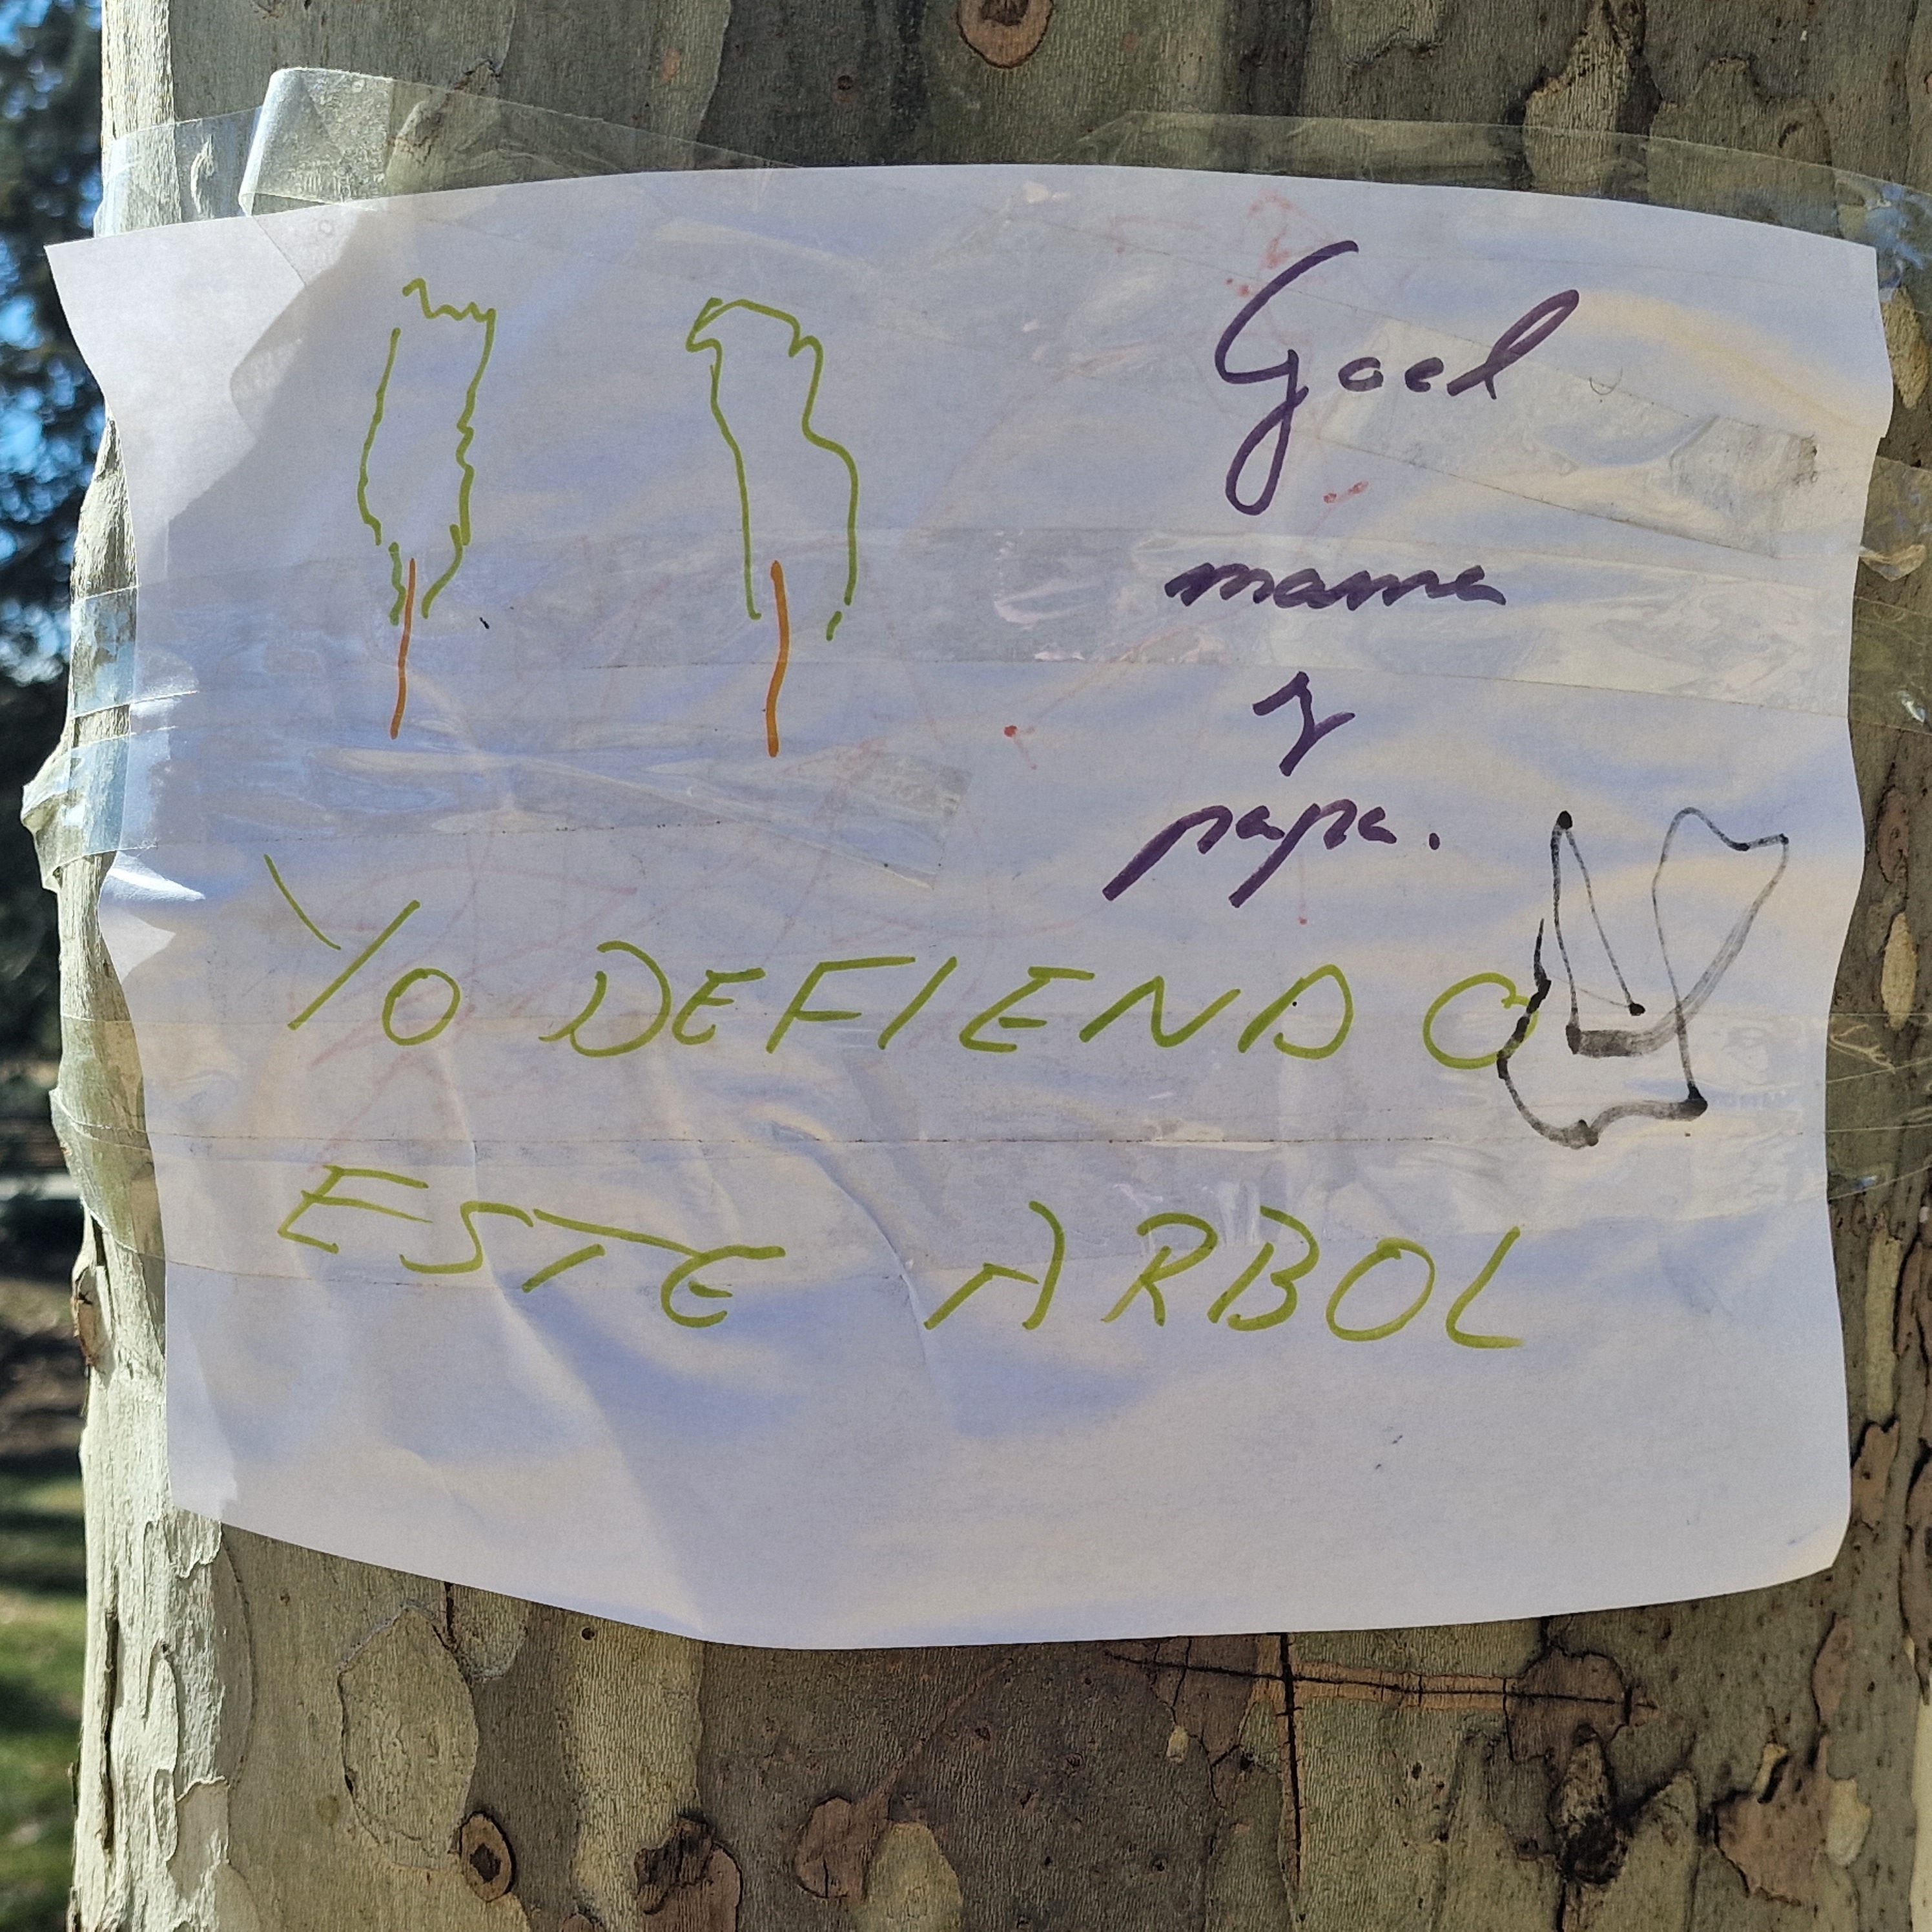 Gael
mama
y
papa.
YO DEFIENDO
ESTE ARBOL